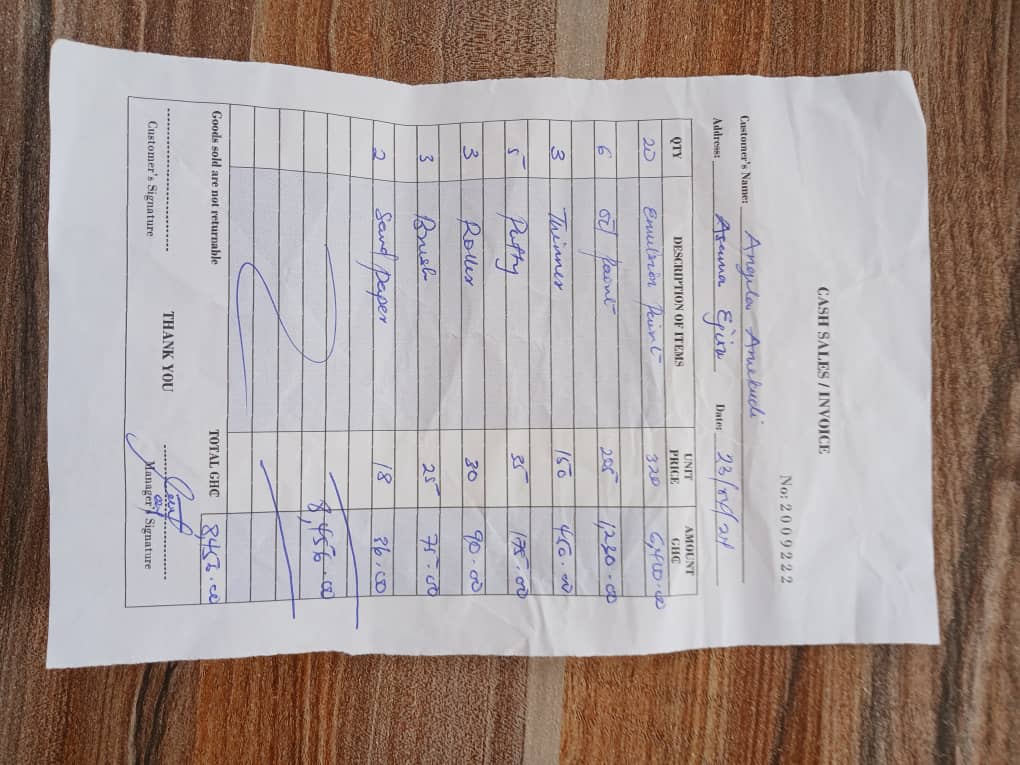 CASH SALES / INVOICE
No: 2009222
Customer's Name: Angela Amekudi
Address: Asuma Date: 23/ /24
QTY DESCRIPTION OF ITEMS UNIT PRICE AMOUNT GHC
20 Emulsion Paint 320 6,400.00
6 Oil Paint 205 1,230.00
3 Thinner 150 450.00
5 Putty 35 175.00
3 Roller 30 90.00
3 Brush 25 75.00
2 Sand paper 18 36.00
8,456.00
TOTAL GHC 8,456.00
Goods sold are not returnable
THANK YOU
Customer's Signature Manager's Signature